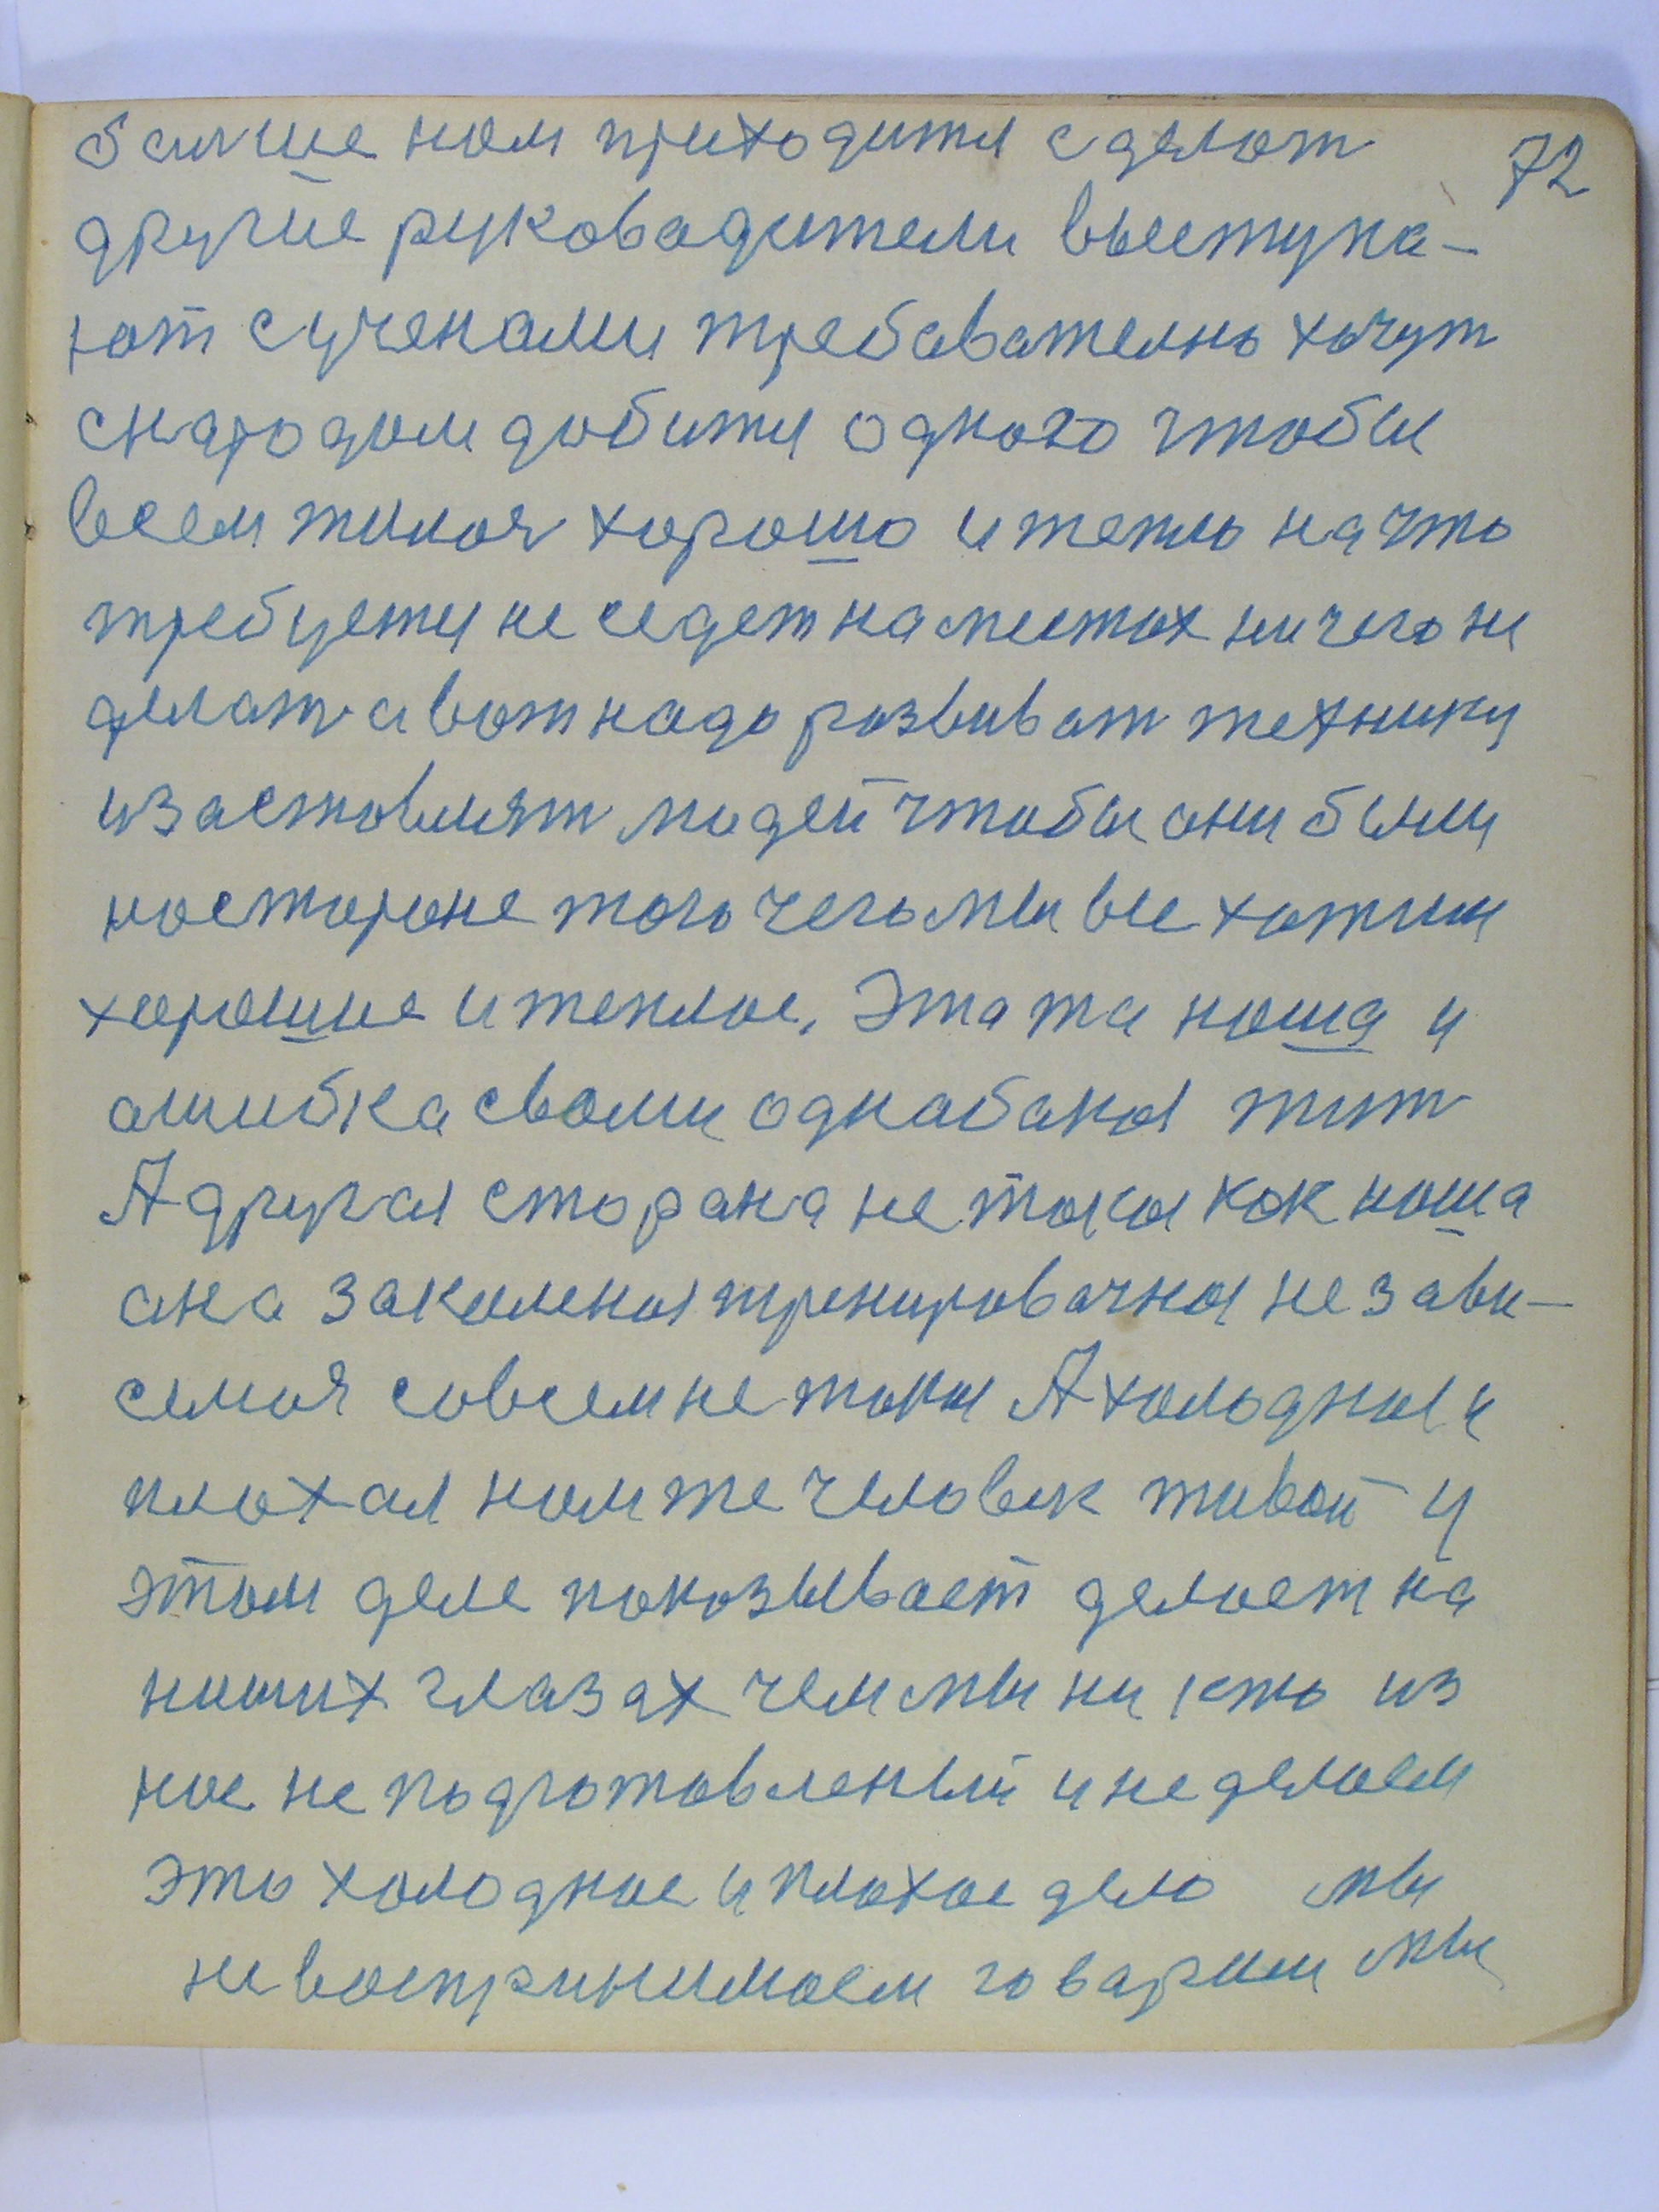 болше нам приходится сделат 72
другие руковадители выступа-
ют сученами требавателно хочут
снародом добится одного чтобы
всем жилося хорошо и тепло на что
требуется не седет наместах ничего не
делат а вот надо развиват технику
изаставлят людей чтобы они были
настороне того чего мы все хотим
хорошие и теплое. Эта та наша и
ашибка свами однабокая жит
А другая сторана не такая как наша
ана закаленая тренировачная незави-
семая совсем не такая А холодная и
плохая нам же человек живой и
этом деле показывает делает на
наших глазах чем мы ни кто из
нас не подготовленый и не делаем
это холодное и плохое дело мы
не воспринимаем говарим мы